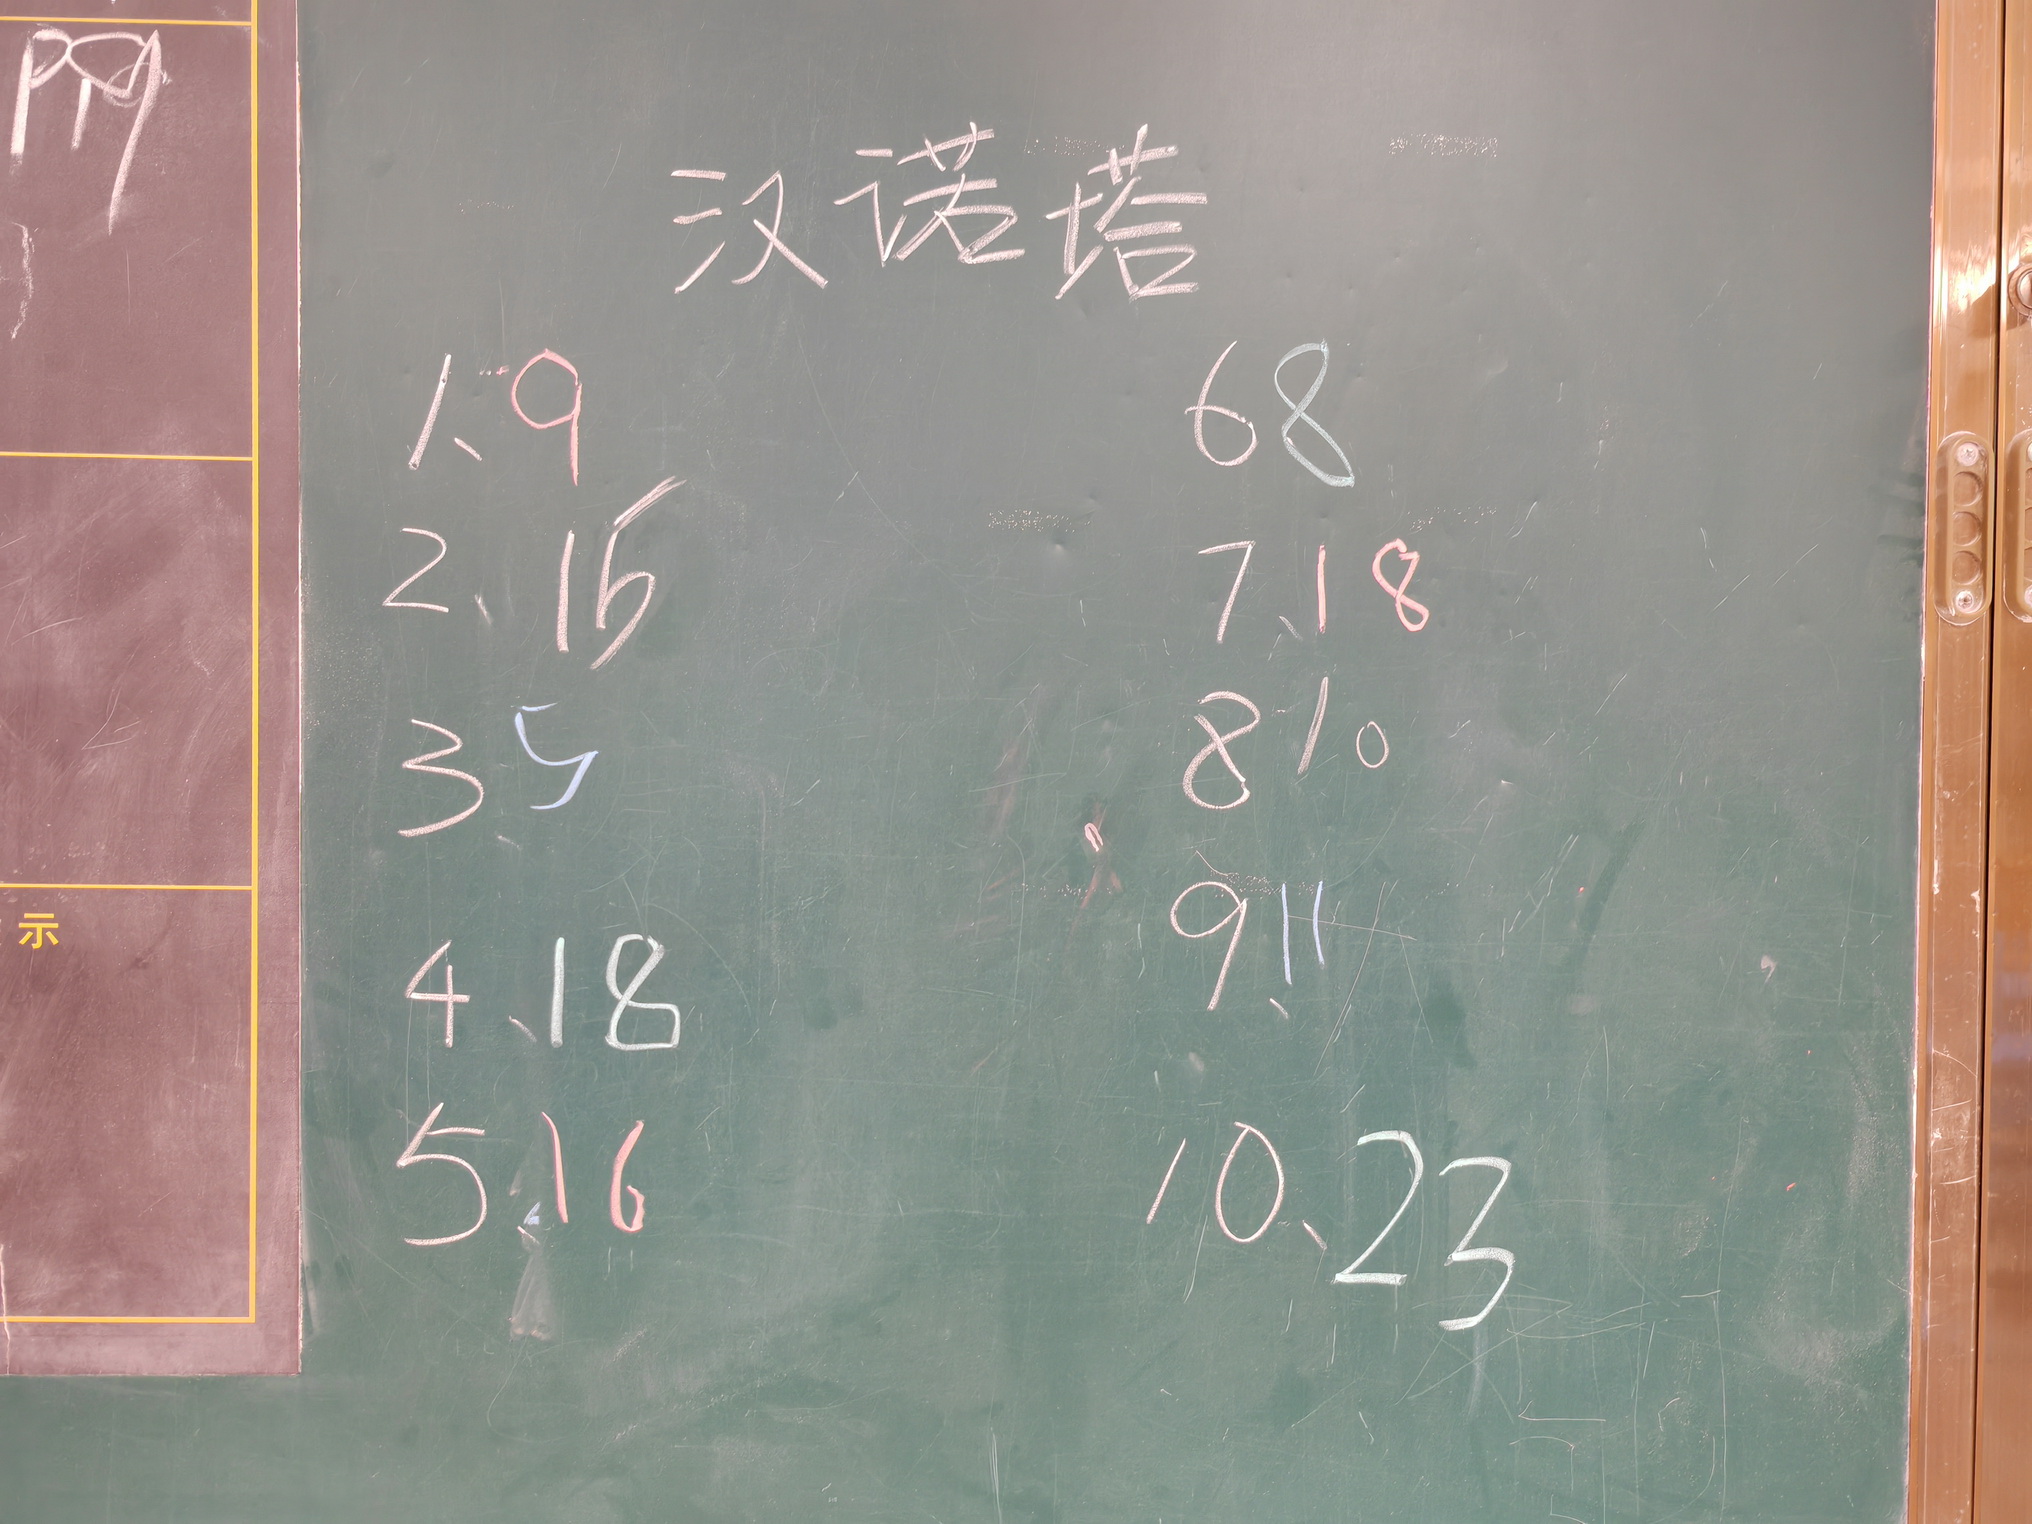 汉诺塔
1、9
2、15
3、5
4、18
5、16
6 8
7、18
8 10
9、11
10、23
示